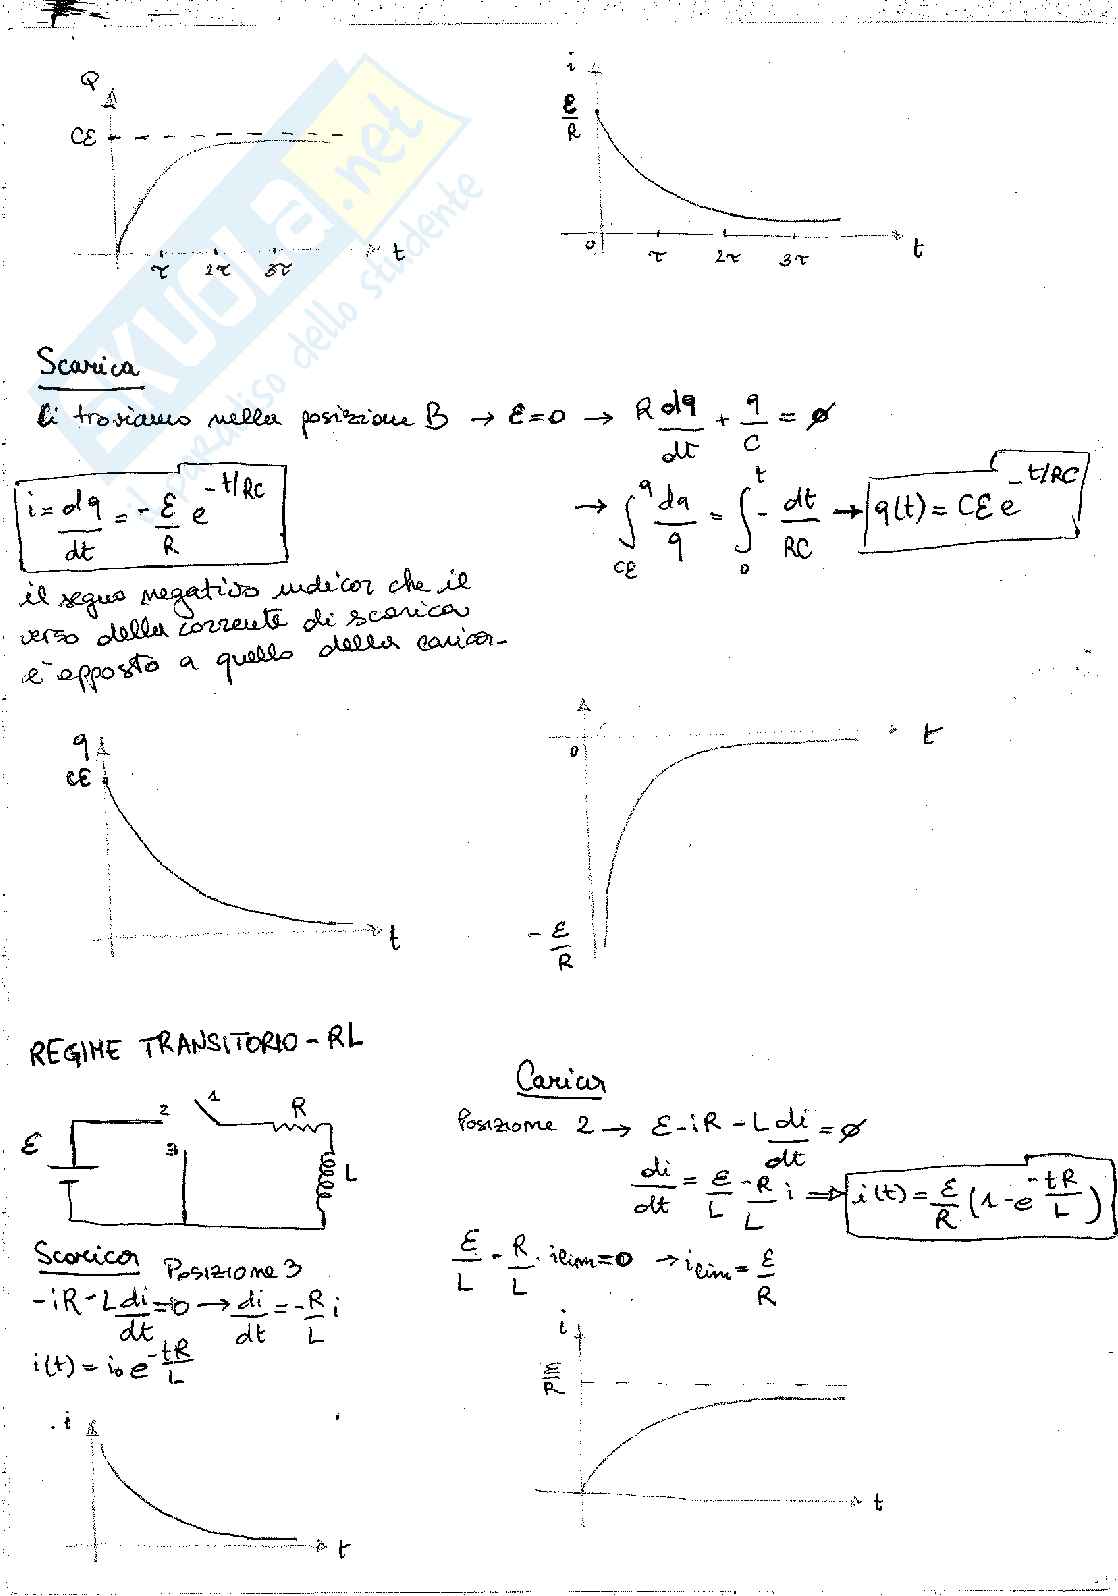 Q
i
CE
E/R
t
τ 2τ 3τ
0 τ 2τ 3τ
t
SKUOLA.net
il paradiso dello studente
Scarica
Ci troviamo nella posizione B → ε=0 → R dq/dt + q/C = ∅
i = dq/dt = - ε/R e^-t/RC
→ ∫_Cε^q dq/q = ∫_0^t - dt/RC → q(t) = Cε e^-t/RC
il segno negativo indica che il
verso della corrente di scarica
è opposto a quello della carica.
q
Cε
t
0
t
- ε/R
REGIME TRANSITORIO - RL
ε 2 1 R
3 L
Carica
Posizione 2 → ε - iR - L di/dt = ∅
di/dt = ε/L - R/L i ⇒ i(t) = ε/R (1 - e^-tR/L)
ε/L - R/L · i lim = 0 → i lim = ε/R
Scarica Posizione 3
-iR - L di/dt = 0 → di/dt = - R/L i
i(t) = i₀ e^-tR/L
i
t
i
ε/R
t